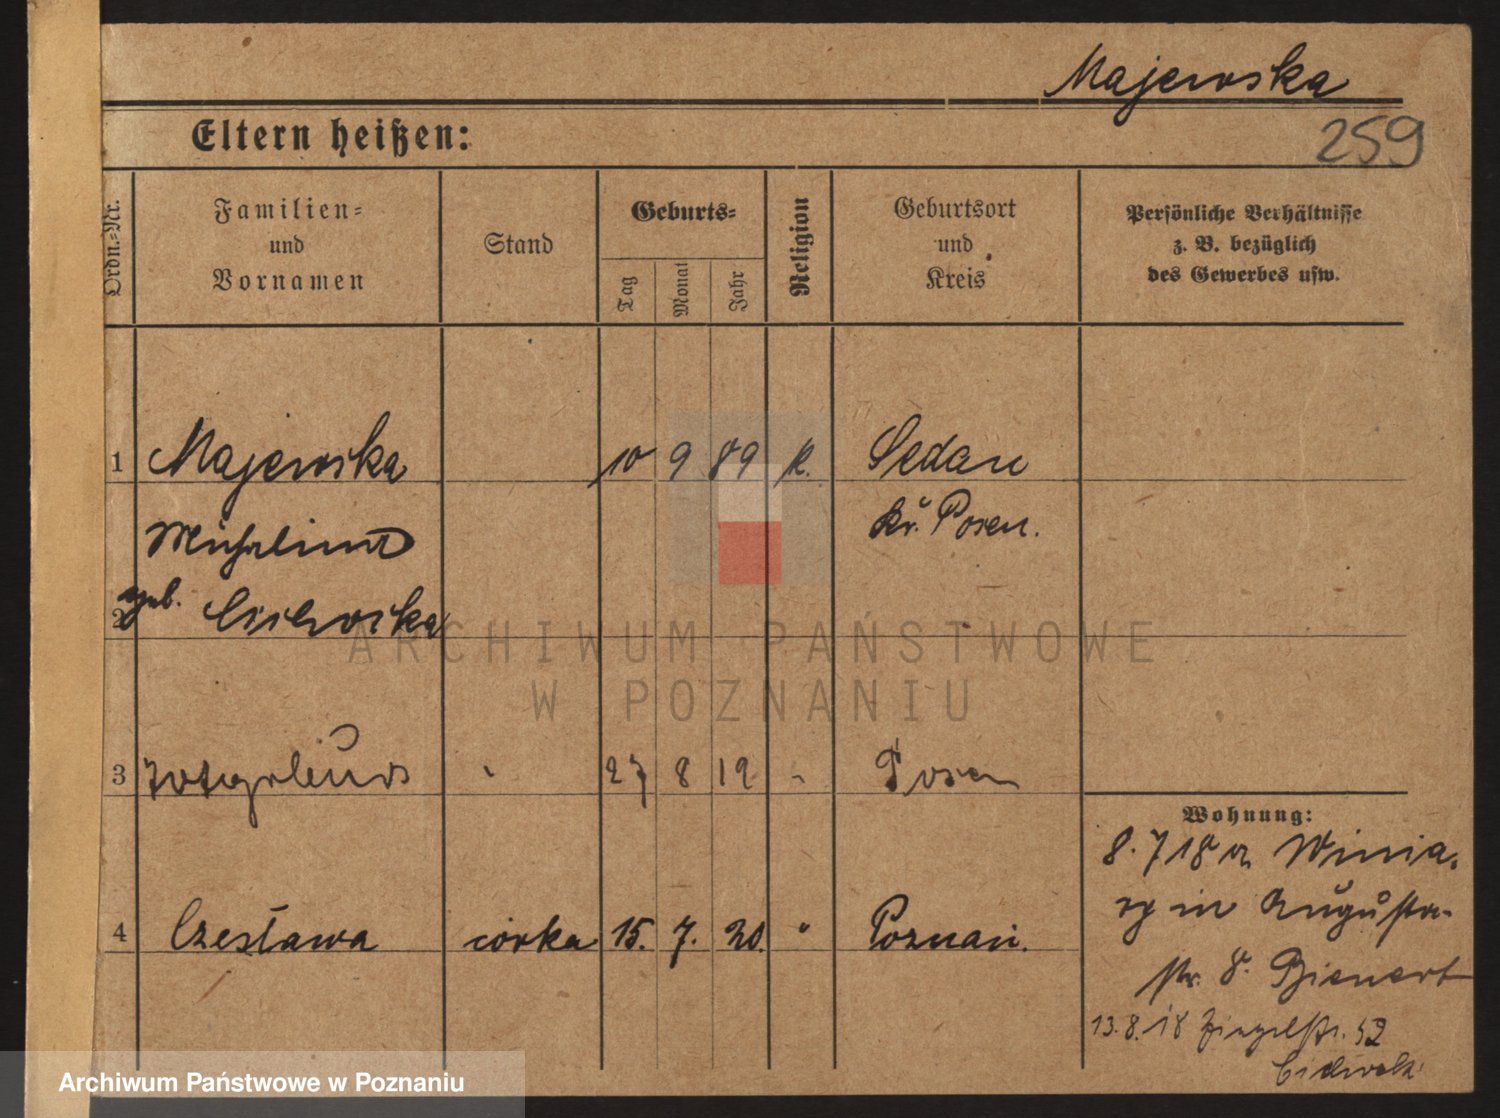 Majewska
259
Eltern heißen:
Ordn.=Nr.
Familien=
und
Vornamen
Stand
Geburts=
Tag
Monat
Jahr
Religion
Geburtsort
und
Kreis
Persönliche Verhältnisse
z. B. bezüglich
des Gewerbes usw.
1 Majewska 10 9 89 k. Sedan
Kr. Posen.
2 geb.
3 27 8 19 " Posen
Wohnung:
8. 7 18 Winia-
ry in Augusta-
str. 8. Bienert
4 Czesława córka 15. 7. 20. " Poznań.
13.8.18 Ziegelstr. 52
ARCHIWUM PAŃSTWOWE
W POZNANIU
Archiwum Państwowe w Poznaniu